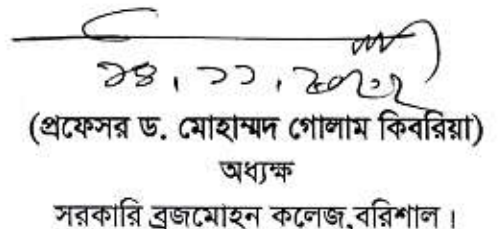 ২৪.১১.২০২২
(প্রফেসর ড. মোহাম্মদ গোলাম কিবরিয়া)
অধ্যক্ষ
সরকারি ব্রজমোহন কলেজ,বরিশাল।